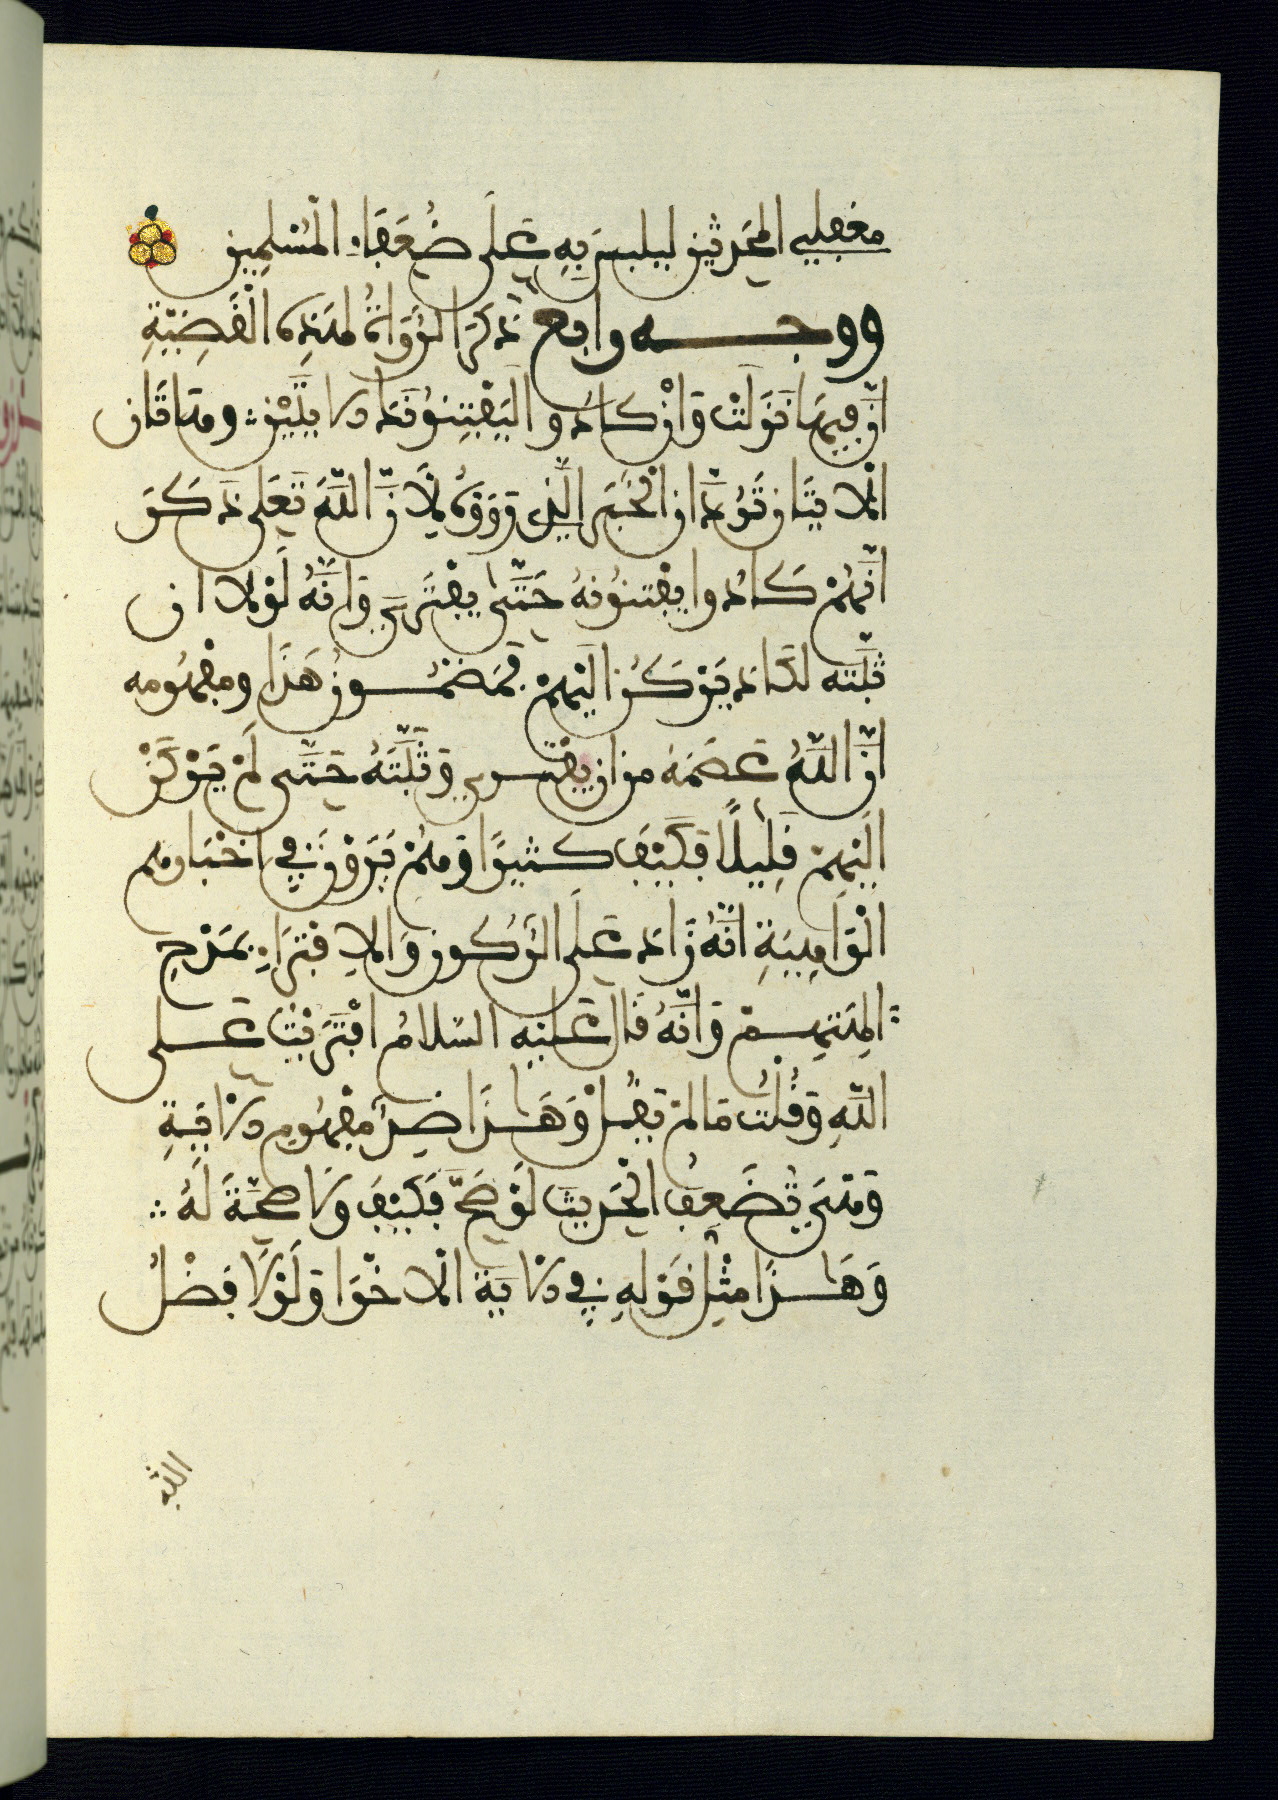 مغفلي المحدثين ليلبس به على ضعفاء المسلمين
ووجه رابع ذكر الرواة لهذه القضية
ان فيها نزلت وان كادوا ليفتنونك الايتين وهاتان
الايتان تردان الخبر الذي رووه لان الله تعلى ذكر
انهم كادوا يفتنونه حتى يفتري وانه لولا ان
ثبته لكاد يركن اليهم فمضمون هذا ومفهومه
ان الله عصمه من ان يفتري وثبته حتى لم يركن
اليهم قليلا فكيف كثيرا وهم يروون في اخبارهم
الواهية انه زاد على الركون والافتراء بمدح
الهتهم وانه قال عليه السلام افتريت على
الله وقلت ما لم يقل وهذا ضد مفهوم الاية
وهي تضعف الحديث لو صح فكيف ولا صحة له
وهذا مثل قوله في الاية الاخرا ولولا فضل
الله